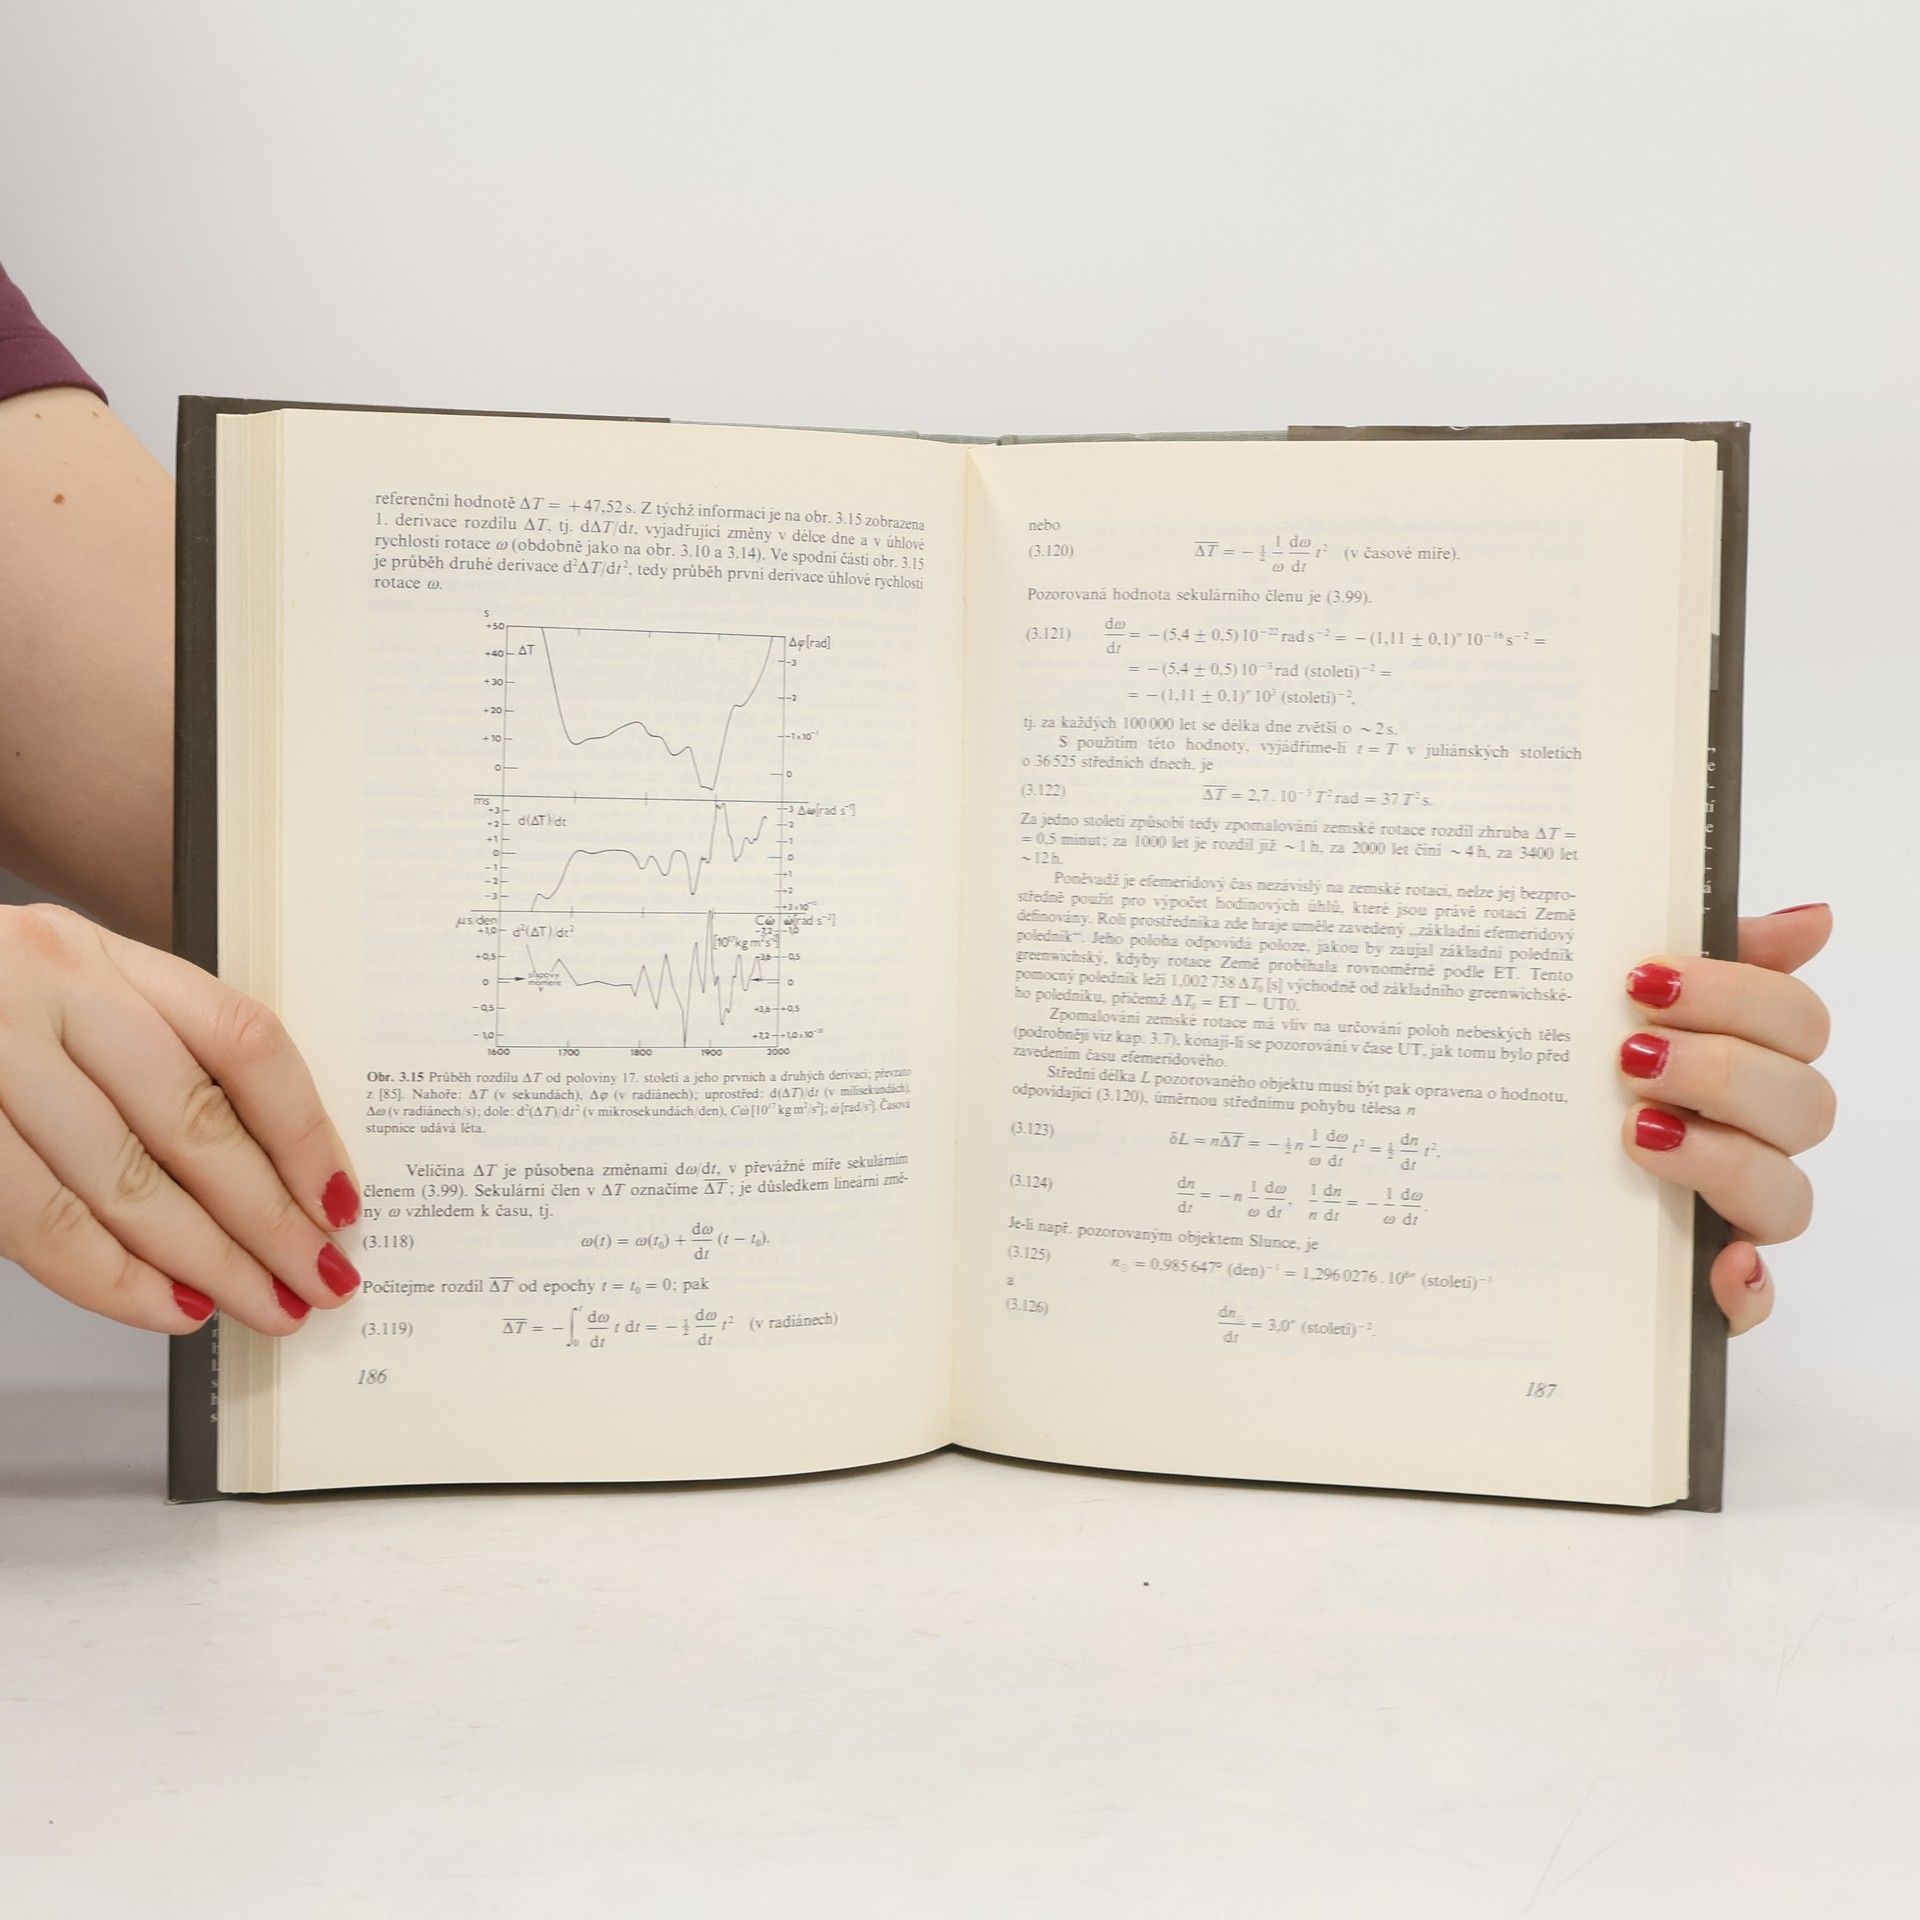 referenční hodnotě ΔT = +47,52 s. Z týchž informací je na obr. 3.15 zobrazena
1. derivace rozdílu ΔT, tj. dΔT/dt, vyjadřující změny v délce dne a v úhlové
rychlosti rotace ω (obdobně jako na obr. 3.10 a 3.14). Ve spodní části obr. 3.15
je průběh druhé derivace d²ΔT/dt², tedy průběh první derivace úhlové rychlosti
rotace ω.
s
+50
+40
+30
+20
+10
0
ΔT
Δφ[rad]
-3
-2
-1x10⁻³
0
ms
+3
+2
+1
0
-1
-2
-3
d(ΔT)/dt
-3 Δω[rad s⁻¹]
-2
-1
0
+1
+2
μs/den
+1,0
+0,5
0
-0,5
-1,0
d²(ΔT)/dt²
slapový
moment
Cω̇ ω̇[rad s⁻²]
-7,2 -1,0
-3,6 -0,5
0
+3,6 +0,5
1600 1700 1800 1900 2000
Obr. 3.15 Průběh rozdílu ΔT od poloviny 17. století a jeho prvních a druhých derivací; převzato
z [85]. Nahoře: ΔT (v sekundách), Δφ (v radiánech); uprostřed: d(ΔT)/dt (v milisekundách),
Δω (v radiánech/s); dole: d²(ΔT)/dt² (v mikrosekundách/den), Cω̇ [10¹⁷ kg m²/s²]; ω̇ [rad/s²]. Časová
stupnice udává léta.
Veličina ΔT je působena změnami dω/dt, v převážné míře sekulárním
členem (3.99). Sekulární člen v ΔT označíme ΔT̅; je důsledkem lineární změ-
ny ω vzhledem k času, tj.
(3.118) ω(t) = ω(t₀) + dω/dt (t − t₀).
Počítejme rozdíl ΔT̅ od epochy t = t₀ = 0; pak
(3.119) ΔT̅ = −∫₀ᵗ dω/dt t dt = −½ dω/dt t² (v radiánech)
186
nebo
(3.120) ΔT̅ = −½ 1/ω dω/dt t² (v časové míře).
Pozorovaná hodnota sekulárního členu je (3.99).
(3.121) dω/dt = −(5,4 ± 0,5) 10⁻²² rad s⁻² = −(1,11 ± 0,1)″ 10⁻¹⁶ s⁻² =
= −(5,4 ± 0,5) 10⁻³ rad (století)⁻² =
= −(1,11 ± 0,1)″ 10³ (století)⁻²,
tj. za každých 100 000 let se délka dne zvětší o ~ 2 s.
S použitím této hodnoty, vyjádříme-li t = T v juliánských stoletích
o 36 525 středních dnech, je
(3.122) ΔT̅ = 2,7 . 10⁻³ T² rad = 37 T² s.
Za jedno století způsobí tedy zpomalování zemské rotace rozdíl zhruba ΔT =
= 0,5 minut; za 1000 let je rozdíl již ~ 1 h, za 2000 let činí ~ 4 h, za 3400 let
~ 12 h.
Poněvadž je efemeridový čas nezávislý na zemské rotaci, nelze jej bezpro-
středně použít pro výpočet hodinových úhlů, které jsou právě rotací Země
definovány. Roli prostředníka zde hraje uměle zavedený „základní efemeridový
poledník“. Jeho poloha odpovídá poloze, jakou by zaujal základní poledník
greenwichský, kdyby rotace Země probíhala rovnoměrně podle ET. Tento
pomocný poledník leží 1,002 738 ΔT₀ [s] východně od základního greenwichské-
ho poledníku, přičemž ΔT₀ = ET − UT0.
Zpomalování zemské rotace má vliv na určování poloh nebeských těles
(podrobněji viz kap. 3.7), konají-li se pozorování v čase UT, jak tomu bylo před
zavedením času efemeridového.
Střední délka L pozorovaného objektu musí být pak opravena o hodnotu,
odpovídající (3.120), úměrnou střednímu pohybu tělesa n
(3.123) δL = nΔT̅ = −½n 1/ω dω/dt t² = ½ dn/dt t²,
(3.124) dn/dt = −n 1/ω dω/dt, 1/n dn/dt = −1/ω dω/dt.
Je-li např. pozorovaným objektem Slunce, je
(3.125) n☉ = 0,985 647° (den)⁻¹ = 1,296 0276 . 10⁸″ (století)⁻¹
a
(3.126) dn☉/dt = 3,0″ (století)⁻².
187